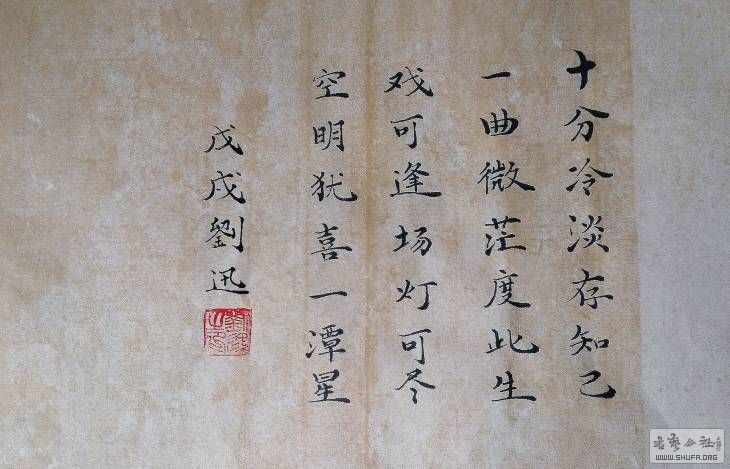 十分冷淡存知己
一曲微茫度此生
戏可逢场灯可尽
空明犹喜一潭星
戊戌劉迅
书艺公社
WWW.SHUFA.ORG